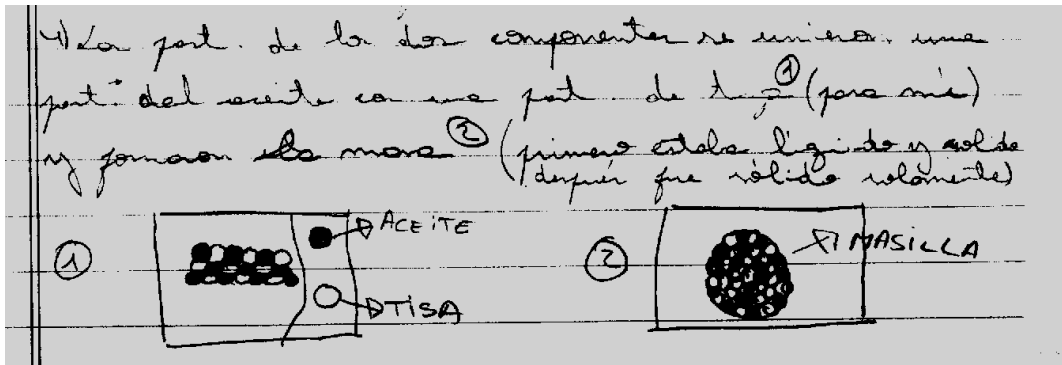 4) Las part. de los dos componentes se unieron. una
part. del aceite con una part. de tiza ① (para mí)
y formaron la masa ② (primero estaba líquido y solido
después fue sólido solamente)
① ACEITE
TISA
② MASILLA